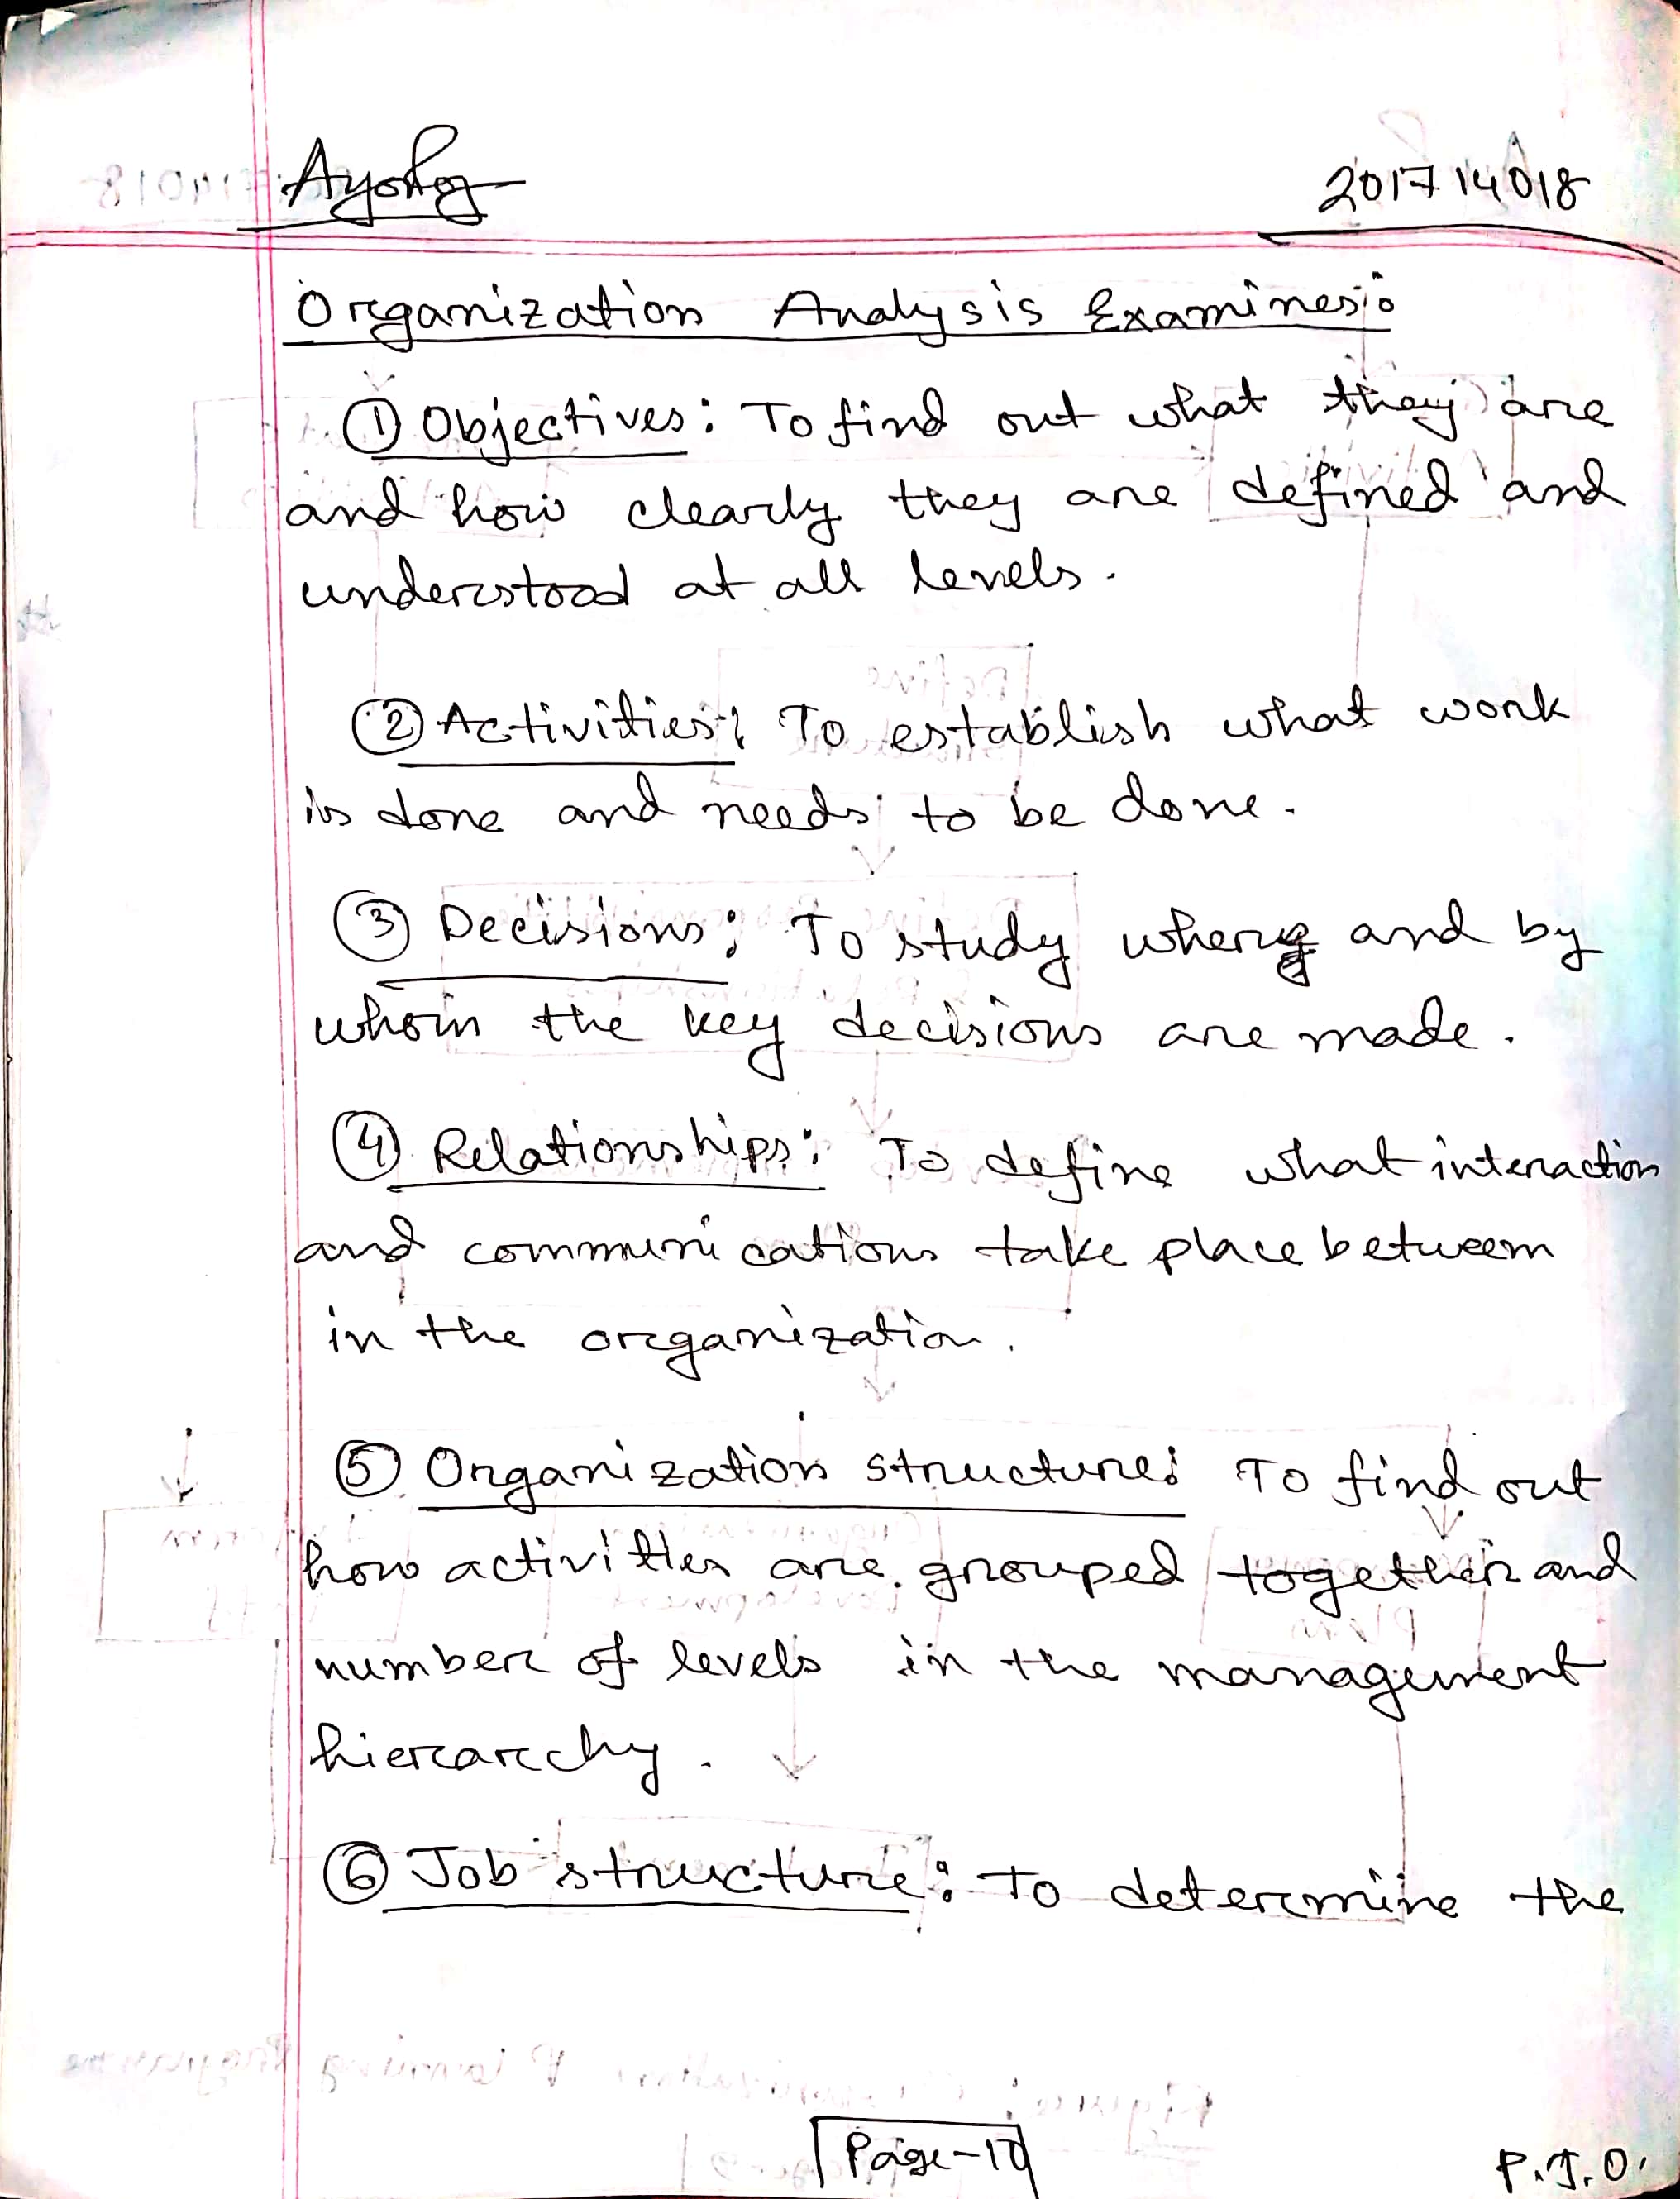 201714018
Organization Analysis Examines:
① Objectives: To find out what they are
and how clearly they are defined and
understood at all levels.
② Activities: To establish what work
is done and needs to be done.
③ Decisions: To study where and by
whom the key decisions are made.
④ Relationships: To define what interaction
and communications take place between
in the organization.
⑤ Organization structure: To find out
how activities are grouped together and
number of levels in the management
hierarchy.
⑥ Job structure: To determine the
P.T.O.